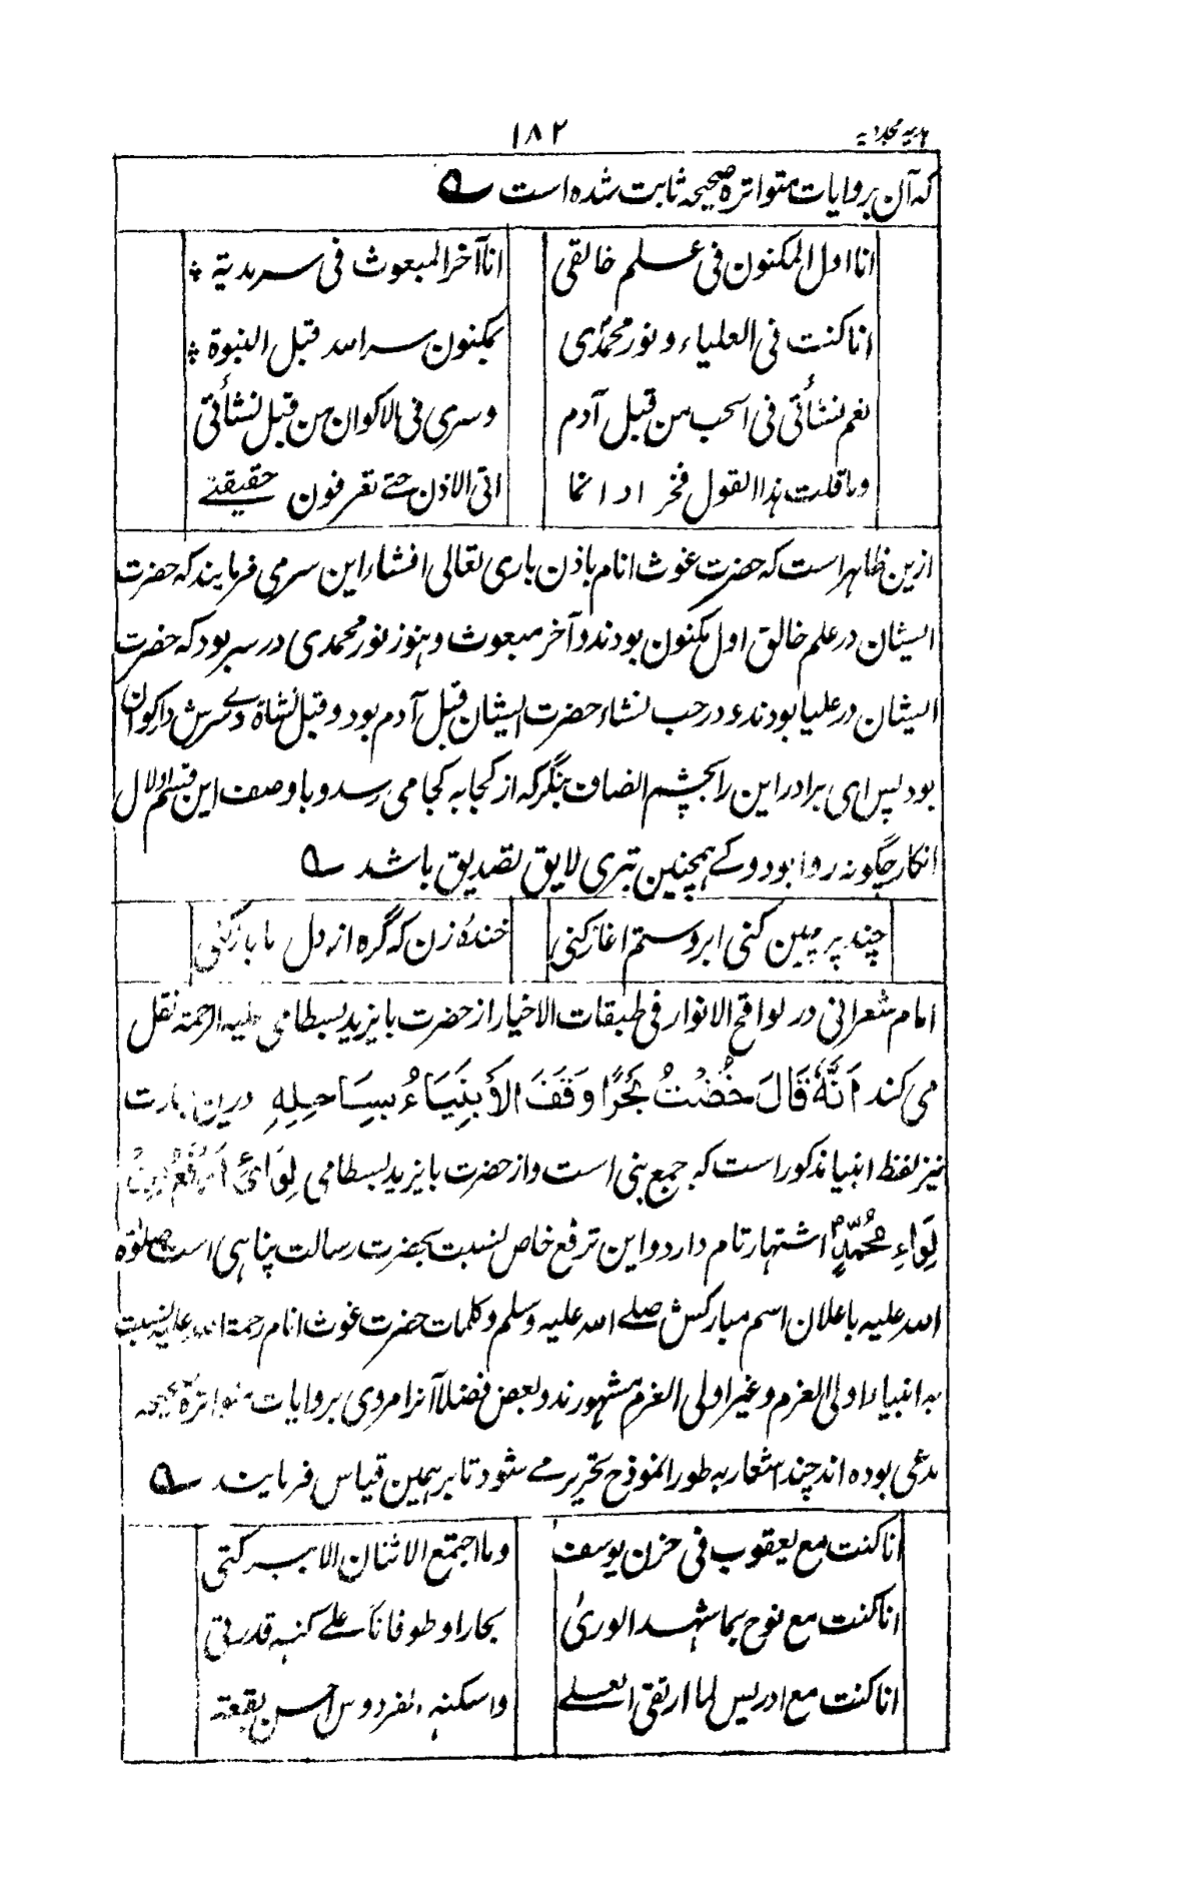 هدیه مجددیه ۱۸۲
که آن بروایات متواتره صحیحه ثابت شده است
انا اول المکنون فی علم خالقی انا آخر المبعوث فی سرمدیة
انا کنت فی العلیاء و نور محمدی بمکنون سر الله قبل النبوة
نعم نشأتی فی الحب من قبل آدم وسری فی الاکوان من قبل نشأتی
وما قلت هذا القول فخرا وانما اتی الاذن حتے تعرفون حقیقتے
ازین ظاہر است که حضرت غوث انام باذن باری تعالی افشاء این سر می فرمایند که حضرت
ایشان در علم خالق اول مکنون بودند و آخر مبعوث و ہنوز نور محمدی در سر بود که حضرت
ایشان در علیا بودند و در حب نشاء حضرت ایشان قبل آدم بود و قبل نشاة وے سرش در اکوان
بود پس ای برادر این را بچشم انصاف بنگر که از کجا به کجا می رسد و با وصف این قسم اقوال
انکار چگونه روا بود و کے همچنین تبری لایق تصدیق باشد
چند پر چین کنی ابرو ستم اغاز کنی خندۂ زن که گره از دل ما باز کنی
امام شعرانی در لواقح الانوار فی طبقات الاخیار از حضرت بایزید بسطامی علیه الرحمة نقل
می کند اَنَّهٗ قَالَ خُضْتُ بَحْرًا وَقَفَ الْاَنْبِیَاءُ بِسَاحِلِهٖ درین عبارت
نیز لفظ انبیا مذکور است که جمع نبی است و از حضرت بایزید بسطامی لِوَائِیْ اَرْفَعُ مِنْ
لِوَاءِ مُحَمَّدٍ اشتهار تام دارد و این ترفع خاص نسبت بحضرت رسالت پناہی است صلوٰة
الله علیه باعلان اسم مبارکش صلے الله علیه وسلم و کلمات حضرت غوث انام رحمة الله علیه نسبت
به انبیاء اولی العزم و غیر اولی العزم مشهورند و بعض فضلا آنرا مروی بروایات متواترۂ صحیحه
مدعی بوده اند چند اشعار به طور انموذج تحریر مے شود تا بر ہمین قیاس فرمایند
انا کنت مع یعقوب فی حزن یوسف وما اجتمع الاثنان الا ببرکتی
انا کنت مع نوح بما شهد الوریٰ بحارا وطوفانا علے کنه قدرتی
انا کنت مع ادریس لما ارتقی العلے واسکنه الفردوس احسن بقعته